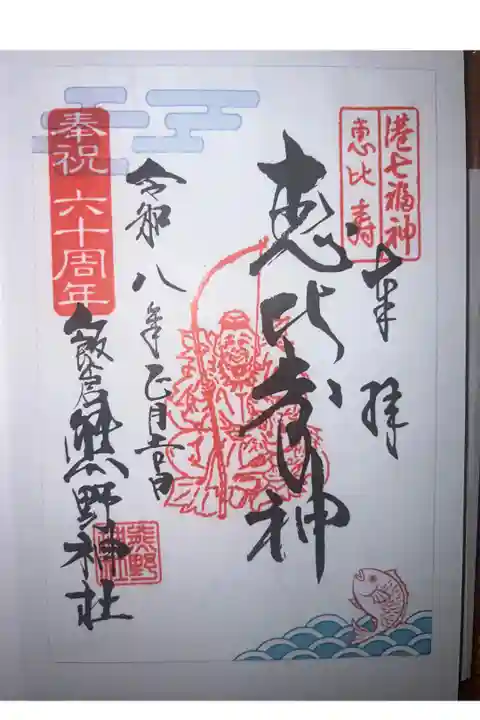 港七福神
恵比寿
奉拝
恵比寿神
令和八年正月六日
飯倉熊野神社
熊野
奉祝 六十周年